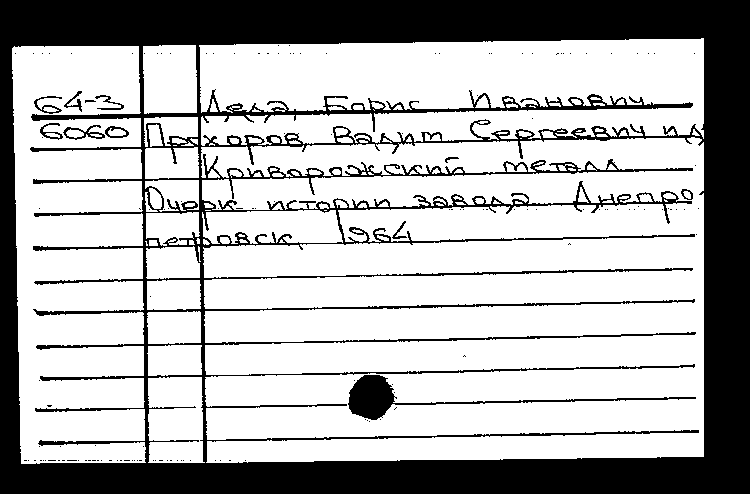 64-3 Деда, Борис Иванович
6060 Прохоров, Вадим Сергеевич и д
Криворожский металл
Очерк истории завода. Днепро-
петровск, 1964